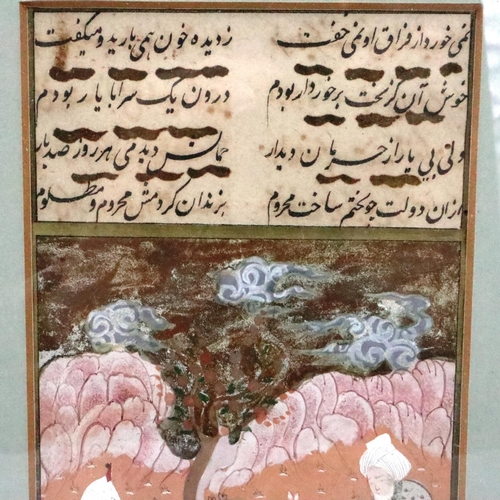 نمی خورد از فراق او نمی خفت ز دیده خون همی بارید و میگفت
خوش آن کز بخت برخوردار بودم درون یک سرا با یار بودم
ولی بی یار از دیدار جمالش دیدمی هر روز صد بار
از ان دولت چو بختم ساخت محروم بزندان کردمش محروم و مظلوم